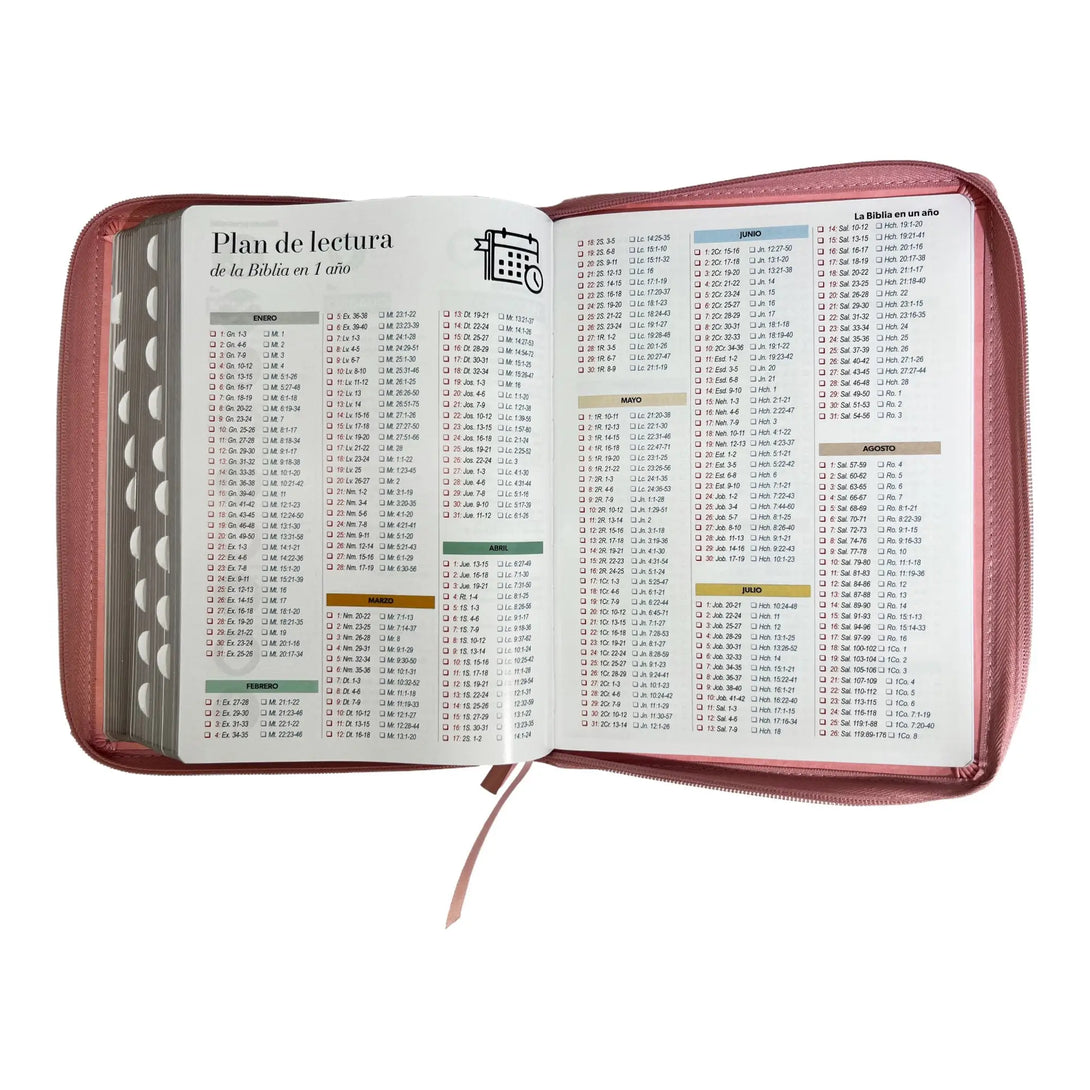 Plan de lectura
de la Biblia en 1 año
ENERO
1: Gn. 1-3 Mt. 1
2: Gn. 4-6 Mt. 2
3: Gn. 7-9 Mt. 3
4: Gn. 10-12 Mt. 4
5: Gn. 13-15 Mt. 5:1-26
6: Gn. 16-17 Mt. 5:27-48
7: Gn. 18-19 Mt. 6:1-18
8: Gn. 20-22 Mt. 6:19-34
9: Gn. 23-24 Mt. 7
10: Gn. 25-26 Mt. 8:1-17
11: Gn. 27-28 Mt. 8:18-34
12: Gn. 29-30 Mt. 9:1-17
13: Gn. 31-32 Mt. 9:18-38
14: Gn. 33-35 Mt. 10:1-20
15: Gn. 36-38 Mt. 10:21-42
16: Gn. 39-40 Mt. 11
17: Gn. 41-42 Mt. 12:1-23
18: Gn. 43-45 Mt. 12:24-50
19: Gn. 46-48 Mt. 13:1-30
20: Gn. 49-50 Mt. 13:31-58
21: Ex. 1-3 Mt. 14:1-21
22: Ex. 4-6 Mt. 14:22-36
23: Ex. 7-8 Mt. 15:1-20
24: Ex. 9-11 Mt. 15:21-39
25: Ex. 12-13 Mt. 16
26: Ex. 14-15 Mt. 17
27: Ex. 16-18 Mt. 18:1-20
28: Ex. 19-20 Mt. 18:21-35
29: Ex. 21-22 Mt. 19
30: Ex. 23-24 Mt. 20:1-16
31: Ex. 25-26 Mt. 20:17-34
FEBRERO
1: Ex. 27-28 Mt. 21:1-22
2: Ex. 29-30 Mt. 21:23-46
3: Ex. 31-33 Mt. 22:1-22
4: Ex. 34-35 Mt. 22:23-46
5: Ex. 36-38 Mt. 23:1-22
6: Ex. 39-40 Mt. 23:23-39
7: Lv. 1-3 Mt. 24:1-28
8: Lv. 4-5 Mt. 24:29-51
9: Lv. 6-7 Mt. 25:1-30
10: Lv. 8-10 Mt. 25:31-46
11: Lv. 11-12 Mt. 26:1-25
12: Lv. 13 Mt. 26:26-50
13: Lv. 14 Mt. 26:51-75
14: Lv. 15-16 Mt. 27:1-26
15: Lv. 17-18 Mt. 27:27-50
16: Lv. 19-20 Mt. 27:51-66
17: Lv. 21-22 Mt. 28
18: Lv. 23-24 Mr. 1:1-22
19: Lv. 25 Mr. 1:23-45
20: Lv. 26-27 Mr. 2
21: Nm. 1-2 Mr. 3:1-19
22: Nm. 3-4 Mr. 3:20-35
23: Nm. 5-6 Mr. 4:1-20
24: Nm. 7-8 Mr. 4:21-41
25: Nm. 9-11 Mr. 5:1-20
26: Nm. 12-14 Mr. 5:21-43
27: Nm. 15-16 Mr. 6:1-29
28: Nm. 17-19 Mr. 6:30-56
MARZO
1: Nm. 20-22 Mr. 7:1-13
2: Nm. 23-25 Mr. 7:14-37
3: Nm. 26-28 Mr. 8
4: Nm. 29-31 Mr. 9:1-29
5: Nm. 32-34 Mr. 9:30-50
6: Nm. 35-36 Mr. 10:1-31
7: Dt. 1-3 Mr. 10:32-52
8: Dt. 4-6 Mr. 11:1-18
9: Dt. 7-9 Mr. 11:19-33
10: Dt. 10-12 Mr. 12:1-27
11: Dt. 13-15 Mr. 12:28-44
12: Dt. 16-18 Mr. 13:1-20
13: Dt. 19-21 Mr. 13:21-37
14: Dt. 22-24 Mr. 14:1-26
15: Dt. 25-27 Mr. 14:27-53
16: Dt. 28-29 Mr. 14:54-72
17: Dt. 30-31 Mr. 15:1-25
18: Dt. 32-34 Mr. 15:26-47
19: Jos. 1-3 Mr. 16
20: Jos. 4-6 Lc. 1:1-20
21: Jos. 7-9 Lc. 1:21-38
22: Jos. 10-12 Lc. 1:39-56
23: Jos. 13-15 Lc. 1:57-80
24: Jos. 16-18 Lc. 2:1-24
25: Jos. 19-21 Lc. 2:25-52
26: Jos. 22-24 Lc. 3
27: Jue. 1-3 Lc. 4:1-30
28: Jue. 4-6 Lc. 4:31-44
29: Jue. 7-8 Lc. 5:1-16
30: Jue. 9-10 Lc. 5:17-39
31: Jue. 11-12 Lc. 6:1-26
ABRIL
1: Jue. 13-15 Lc. 6:27-49
2: Jue. 16-18 Lc. 7:1-30
3: Jue. 19-21 Lc. 7:31-50
4: Rt. 1-4 Lc. 8:1-25
5: 1S. 1-3 Lc. 8:26-56
6: 1S. 4-6 Lc. 9:1-17
7: 1S. 7-9 Lc. 9:18-36
8: 1S. 10-12 Lc. 9:37-62
9: 1S. 13-14 Lc. 10:1-24
10: 1S. 15-16 Lc. 10:25-42
11: 1S. 17-18 Lc. 11:1-28
12: 1S. 19-21 Lc. 11:29-54
13: 1S. 22-24 12:1-31
14: 1S. 25-26 12:32-59
15: 1S. 27-29 13:1-22
16: 1S. 30-31 13:23-35
17: 2S. 1-2 14:1-24
La Biblia en un año
18: 2S. 3-5 Lc. 14:25-35
19: 2S. 6-8 Lc. 15:1-10
20: 2S. 9-11 Lc. 15:11-32
21: 2S. 12-13 Lc. 16
22: 2S. 14-15 Lc. 17:1-19
23: 2S. 16-18 Lc. 17:20-37
24: 2S. 19-20 Lc. 18:1-23
25: 2S. 21-22 Lc. 18:24-43
26: 2S. 23-24 Lc. 19:1-27
27: 1R. 1-2 Lc. 19:28-48
28: 1R. 3-5 Lc. 20:1-26
29: 1R. 6-7 Lc. 20:27-47
30: 1R. 8-9 Lc. 21:1-19
MAYO
1: 1R. 10-11 Lc. 21:20-38
2: 1R. 12-13 Lc. 22:1-30
3: 1R. 14-15 Lc. 22:31-46
4: 1R. 16-18 Lc. 22:47-71
5: 1R. 19-20 Lc. 23:1-25
6: 1R. 21-22 Lc. 23:26-56
7: 2R. 1-3 Lc. 24:1-35
8: 2R. 4-6 Lc. 24:36-53
9: 2R. 7-9 Jn. 1:1-28
10: 2R. 10-12 Jn. 1:29-51
11: 2R. 13-14 Jn. 2
12: 2R. 15-16 Jn. 3:1-18
13: 2R. 17-18 Jn. 3:19-36
14: 2R. 19-21 Jn. 4:1-30
15: 2R. 22-23 Jn. 4:31-54
16: 2R. 24-25 Jn. 5:1-24
17: 1Cr. 1-3 Jn. 5:25-47
18: 1Cr. 4-6 Jn. 6:1-21
19: 1Cr. 7-9 Jn. 6:22-44
20: 1Cr. 10-12 Jn. 6:45-71
21: 1Cr. 13-15 Jn. 7:1-27
22: 1Cr. 16-18 Jn. 7:28-53
23: 1Cr. 19-21 Jn. 8:1-27
24: 1Cr. 22-24 Jn. 8:28-59
25: 1Cr. 25-27 Jn. 9:1-23
26: 1Cr. 28-29 Jn. 9:24-41
27: 2Cr. 1-3 Jn. 10:1-23
28: 2Cr. 4-6 Jn. 10:24-42
29: 2Cr. 7-9 Jn. 11:1-29
30: 2Cr. 10-12 Jn. 11:30-57
31: 2Cr. 13-14 Jn. 12:1-26
JUNIO
1: 2Cr. 15-16 Jn. 12:27-50
2: 2Cr. 17-18 Jn. 13:1-20
3: 2Cr. 19-20 Jn. 13:21-38
4: 2Cr. 21-22 Jn. 14
5: 2Cr. 23-24 Jn. 15
6: 2Cr. 25-27 Jn. 16
7: 2Cr. 28-29 Jn. 17
8: 2Cr. 30-31 Jn. 18:1-18
9: 2Cr. 32-33 Jn. 18:19-40
10: 2Cr. 34-36 Jn. 19:1-22
11: Esd. 1-2 Jn. 19:23-42
12: Esd. 3-5 Jn. 20
13: Esd. 6-8 Jn. 21
14: Esd. 9-10 Hch. 1
15: Neh. 1-3 Hch. 2:1-21
16: Neh. 4-6 Hch. 2:22-47
17: Neh. 7-9 Hch. 3
18: Neh. 10-11 Hch. 4:1-22
19: Neh. 12-13 Hch. 4:23-37
20: Est. 1-2 Hch. 5:1-21
21: Est. 3-5 Hch. 5:22-42
22: Est. 6-8 Hch. 6
23: Est. 9-10 Hch. 7:1-21
24: Job. 1-2 Hch. 7:22-43
25: Job. 3-4 Hch. 7:44-60
26: Job. 5-7 Hch. 8:1-25
27: Job. 8-10 Hch. 8:26-40
28: Job. 11-13 Hch. 9:1-21
29: Job. 14-16 Hch. 9:22-43
30: Job. 17-19 Hch. 10:1-23
JULIO
1: Job. 20-21 Hch. 10:24-48
2: Job. 22-24 Hch. 11
3: Job. 25-27 Hch. 12
4: Job. 28-29 Hch. 13:1-25
5: Job. 30-31 Hch. 13:26-52
6: Job. 32-33 Hch. 14
7: Job. 34-35 Hch. 15:1-21
8: Job. 36-37 Hch. 15:22-41
9: Job. 38-40 Hch. 16:1-21
10: Job. 41-42 Hch. 16:22-40
11: Sal. 1-3 Hch. 17:1-15
12: Sal. 4-6 Hch. 17:16-34
13: Sal. 7-9 Hch. 18
14: Sal. 10-12 Hch. 19:1-20
15: Sal. 13-15 Hch. 19:21-41
16: Sal. 16-17 Hch. 20:1-16
17: Sal. 18-19 Hch. 20:17-38
18: Sal. 20-22 Hch. 21:1-17
19: Sal. 23-25 Hch. 21:18-40
20: Sal. 26-28 Hch. 22
21: Sal. 29-30 Hch. 23:1-15
22: Sal. 31-32 Hch. 23:16-35
23: Sal. 33-34 Hch. 24
24: Sal. 35-36 Hch. 25
25: Sal. 37-39 Hch. 26
26: Sal. 40-42 Hch. 27:1-26
27: Sal. 43-45 Hch. 27:27-44
28: Sal. 46-48 Hch. 28
29: Sal. 49-50 Ro. 1
30: Sal. 51-53 Ro. 2
31: Sal. 54-56 Ro. 3
AGOSTO
1: Sal. 57-59 Ro. 4
2: Sal. 60-62 Ro. 5
3: Sal. 63-65 Ro. 6
4: Sal. 66-67 Ro. 7
5: Sal. 68-69 Ro. 8:1-21
6: Sal. 70-71 Ro. 8:22-39
7: Sal. 72-73 Ro. 9:1-15
8: Sal. 74-76 Ro. 9:16-33
9: Sal. 77-78 Ro. 10
10: Sal. 79-80 Ro. 11:1-18
11: Sal. 81-83 Ro. 11:19-36
12: Sal. 84-86 Ro. 12
13: Sal. 87-88 Ro. 13
14: Sal. 89-90 Ro. 14
15: Sal. 91-93 Ro. 15:1-13
16: Sal. 94-96 Ro. 15:14-33
17: Sal. 97-99 Ro. 16
18: Sal. 100-102 1Co. 1
19: Sal. 103-104 1Co. 2
20: Sal. 105-106 1Co. 3
21: Sal. 107-109 1Co. 4
22: Sal. 110-112 1Co. 5
23: Sal. 113-115 1Co. 6
24: Sal. 116-118 1Co. 7:1-19
25: Sal. 119:1-88 1Co. 7:20-40
26: Sal. 119:89-176 1Co. 8